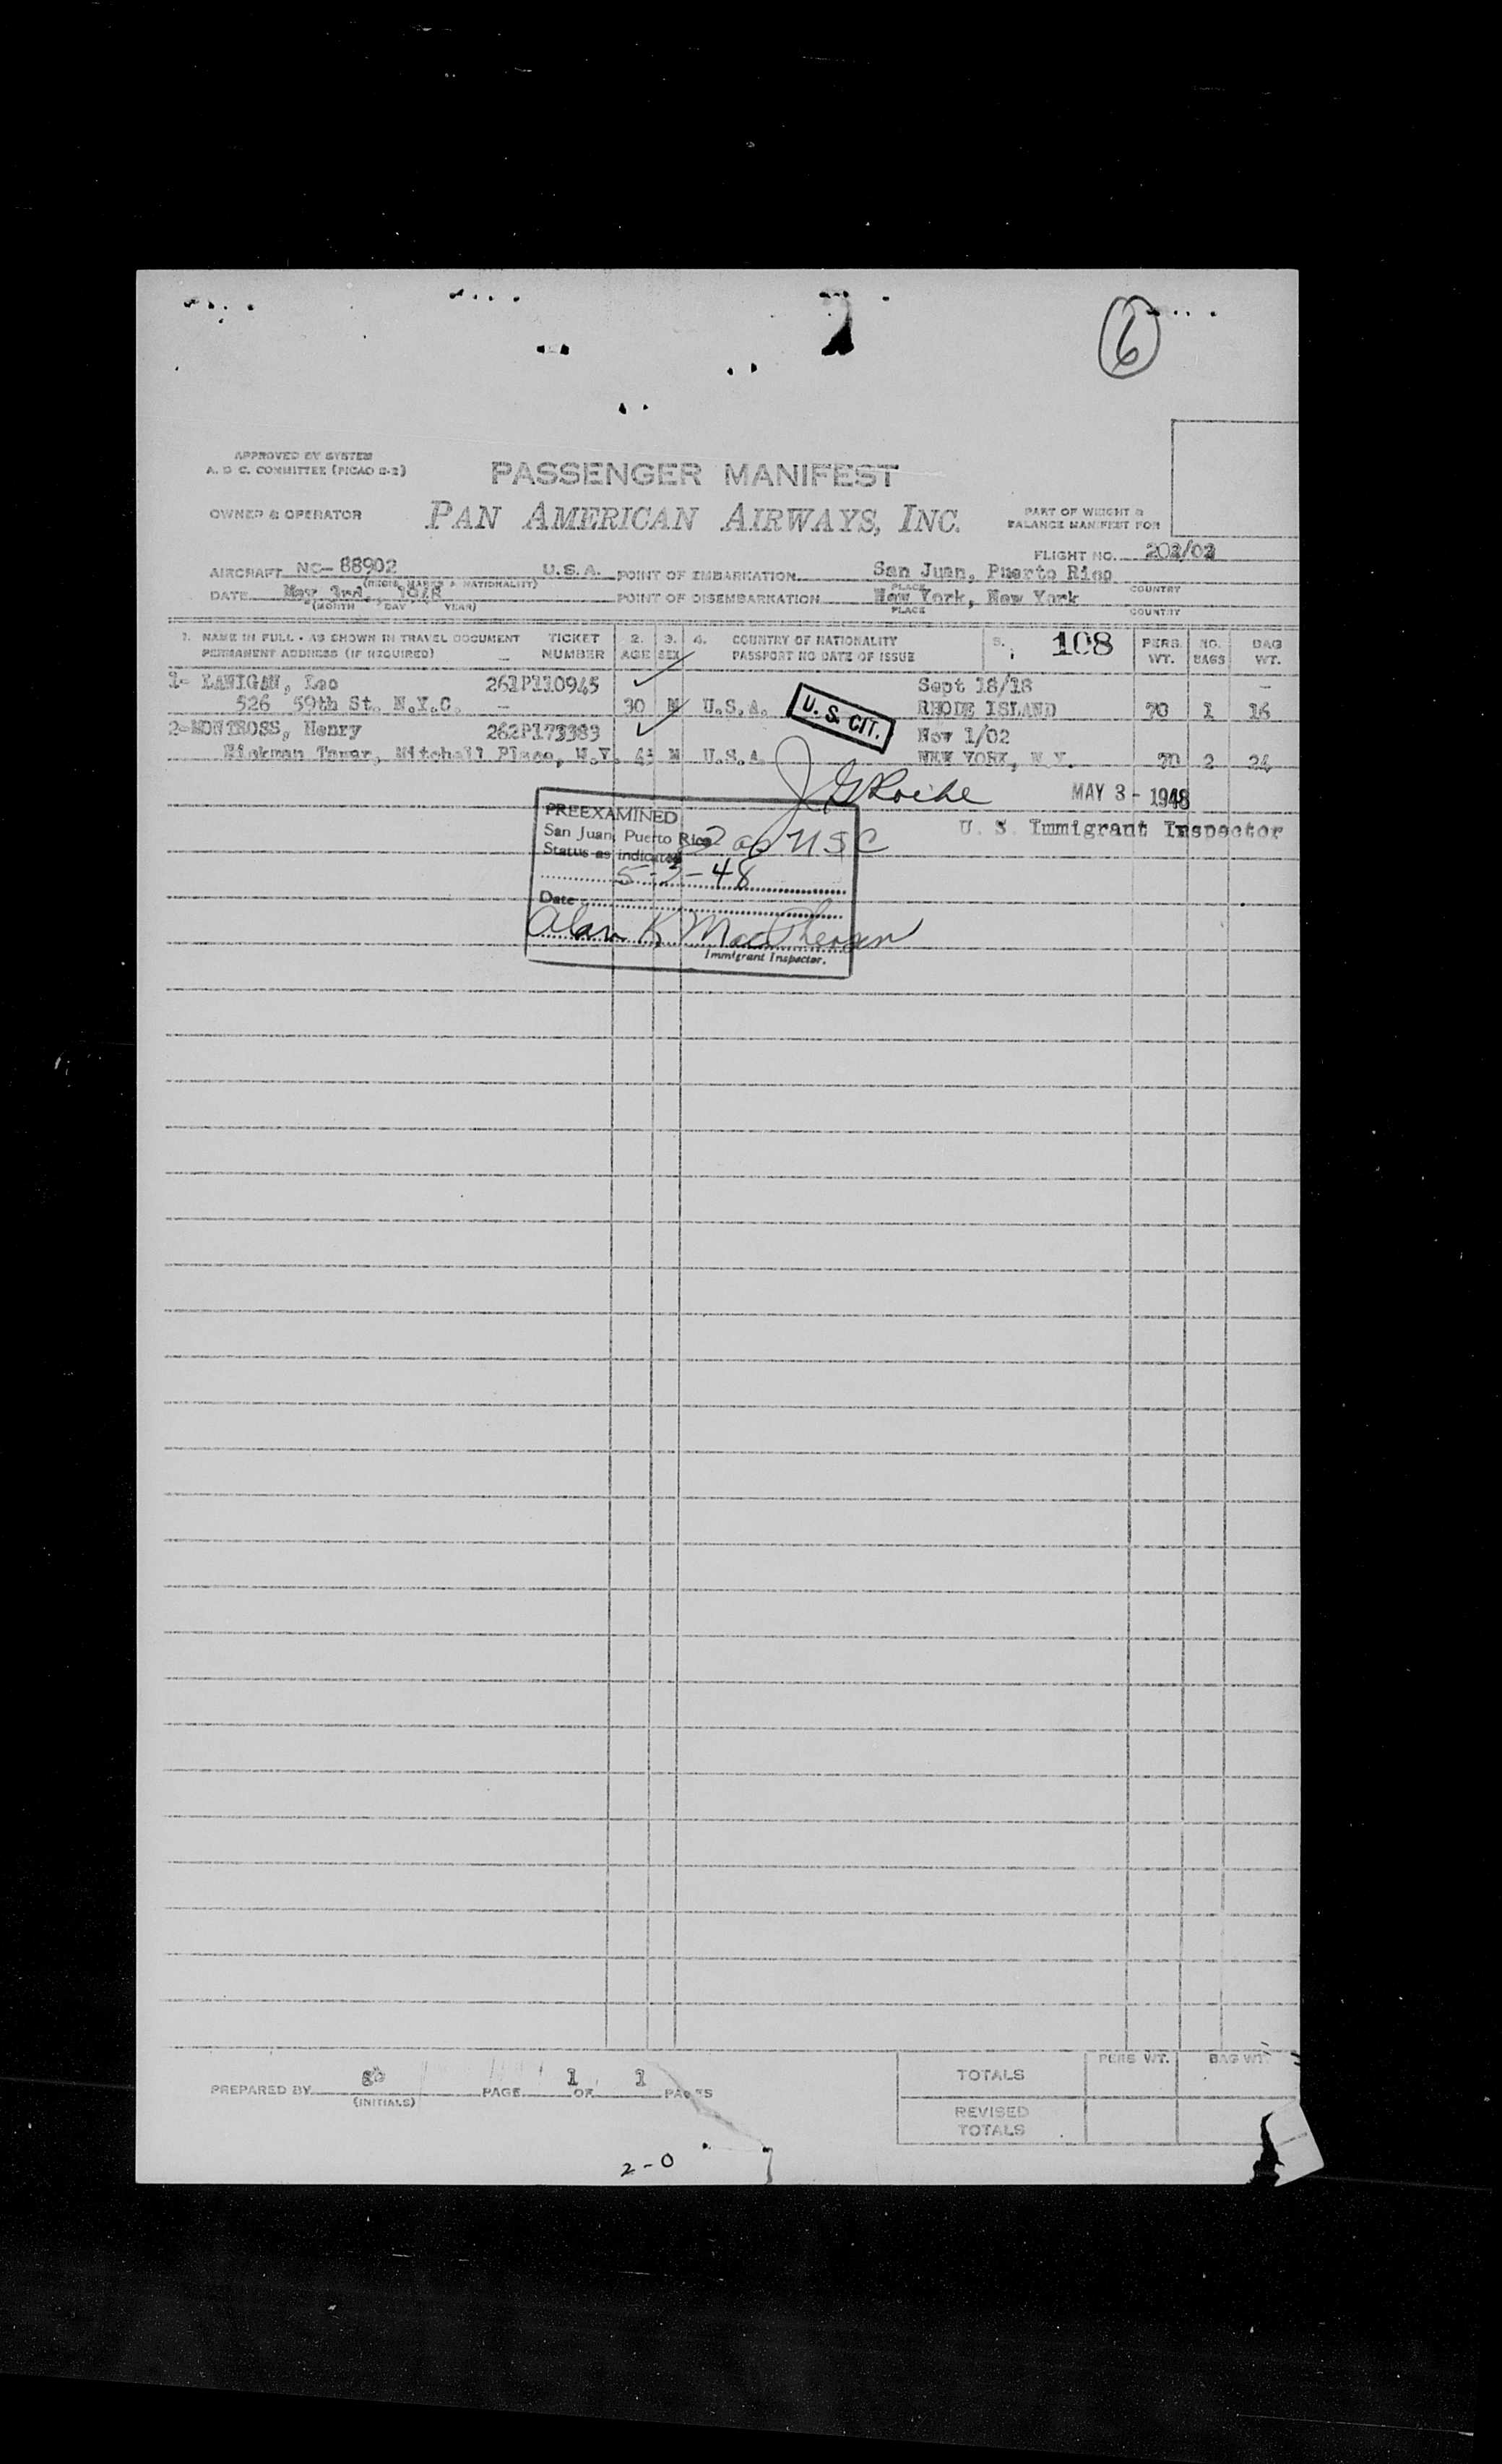 6
APPROVED BY SYSTEM
A. D C. COMMITTEE (PICAO D-2)
PASSENGER MANIFEST
OWNER & OPERATOR
PAN AMERICAN AIRWAYS, INC.
PART OF WEIGHT &
BALANCE MANIFEST FOR
FLIGHT NO.
AIRCRAFT NC-88902 U.S.A. POINT OF EMBARKATION San Juan, Puerto Rico
(REGIS. MARKS & NATIONALITY) PLACE COUNTRY
DATE May 3rd., 1948 POINT OF DISEMBARKATION New York, New York
(MONTH DAY YEAR) PLACE COUNTRY
1. NAME IN FULL - AS SHOWN IN TRAVEL DOCUMENT TICKET 2. 3. 4. COUNTRY OF NATIONALITY 5. 108 PERS. NO. BAG
PERMANENT ADDRESS (IF REQUIRED) NUMBER AGE SEX PASSPORT NO DATE OF ISSUE WT. BAGS WT.
1- LANIGAN, Leo 261P110945 Sept 18/18
526 59th St. N.Y.C. - 30 M U.S.A. U. S. CIT. RHODE ISLAND 70 1 16
2-MONTROSS, Henry 262P173383 Nov 1/02
Tower, Mitchell Place, N.Y. 45 M U.S.A. NEW YORK, N.Y. 70 2 24
MAY 3 - 1948
U. S. Immigrant Inspector
PREEXAMINED
San Juan, Puerto Rico 2 as USC
Status as indicated
5-3-48
Date
Alan K MacPherson
Immigrant Inspector.
PERS WT. BAG WT.
TOTALS
PREPARED BY PAGE 1 OF 1 PAGES
(INITIALS)
REVISED
TOTALS
2-0